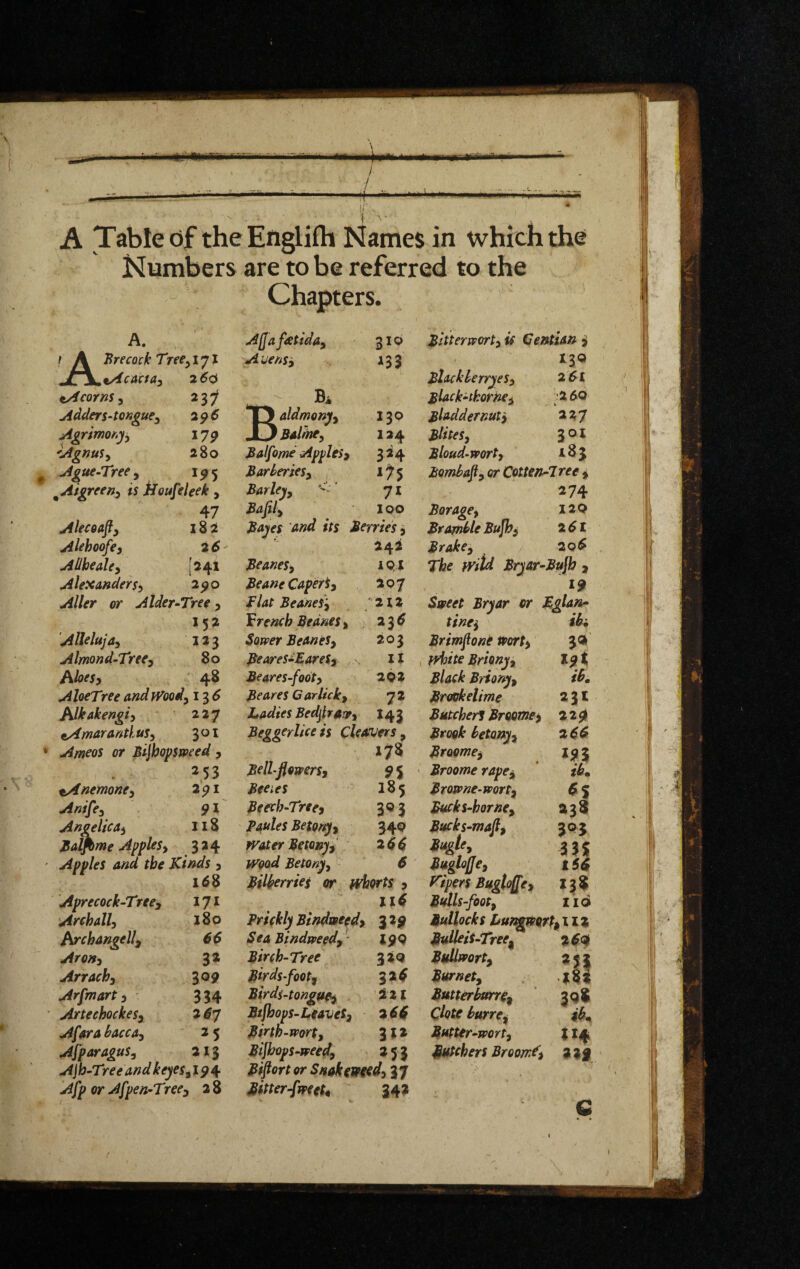 A Table of the Engliſh Names in which the
Numbers are to be referred to the
Chapters.
A.
ABrecock Tree, 171
Acacia, 260
Acorns, 237
Adders-tongue, 296
Agrimony, 179
Agnus, 280
Ague-Tree, 195
Aigreen, is Houſeleek,
47
Alecoaſt, 182
Alehoofe, 26
Allheale, 241
Alexanders, 290
Aller or Alder-Tree,
152
Alleluja, 123
Almond-Tree, 80
Aloes, 48
AloeTree and Wood, 136
Alkakengi, 227
Amaranthus, 301
Ameos or Biſhopsweed,
253
Anemone, 291
Aniſe, 91
Angelica, 118
Balſome Apples, 324
Apples and the Kinds,
168
Aprecock-Tree, 171
Archall, 180
Archangell, 66
Aron, 32
Arrach, 309
Arſmart, 334
Artechockes, 267
Aſara bacca, 25
Aſparagus, 213
Aſh-Tree and keyes, 194
Aſp or Aſpen-Tree, 28
Aſſa fætida, 310
Avens, 133
B.
BAldmony, 130
Balme, 124
Balſome Apples, 324
Barberies, 175
Barley, 71
Baſil, 100
Bayes and its Berries,
242
Beanes, 101
Beane Capers, 207
Flat Beanes, 212
French Beanes, 236
Sower Beanes, 203
Beares-Eares, 11
Beares-foot, 202
Beares Garlick, 72
Ladies Bedſtraw, 143
Beggerlice is Cleavers,
178
Bell-flowers, 95
Beetes 185
Beech-Tree, 303
Paules Betony, 340
Water Betony, 266
Wood Betony, 6
Bilberries or Whorts,
116
Prickly Bindweed, 329
Sea Bindweed, 190
Birch-Tree 320
Birds-foot, 326
Birds-tongue, 221
Biſhops-Leaves, 266
Birth-wort, 312
Biſhops-weed, 253
Biſtort or Snakeweed, 37
Bitter-ſweet. 342
Bitterwort, is Gentian,
130
Blackberryes, 261
Black-thorne, 260
Bladdernut, 227
Blites, 301
Bloud-wort, 183
Bombaſt, or Cotten-Tree,
274
Borage, 120
Bramble Buſh, 261
Brake, 206
The Wild Bryar-Buſh,
19
Sweet Bryar or Eglan-
tine, ib.
Brimſtone wort, 30
White Briony, 191
Black Briony, ib.
Brooklime 231
Butchers Broome, 229
Brook betony, 266
Broome, 193
Broome rape, ib.
Browne-wort, 65
Bucks-horne, 238
Bucks-maſt, 303
Bugle, 335
Bugloſſe, 156
Vipers Bugloſſe, 138
Bulls-foot, 110
Bullocks Lungwort, 112
Bulleis-Tree, 260
Bullwort, 253
Burnet, 182
Butterburre, 308
Clote burre, ib.
Butter-wort, 114
Butchers Broome, 229
G